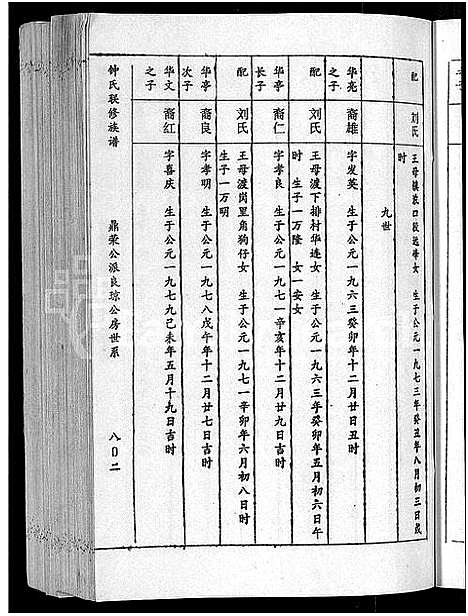 配 刘氏 王母镇浪口段远母女 生于公元一九七三年癸丑年八月初三日戌时
九世
华亮之子 裔雄 字发英 生于公元一九六三癸卯年十二月廿日丑时
配 刘氏 王母渡下排村华连女 生于公元一九六三年癸卯年五月初六日午时 生子一万隆 女一安女
华亭长子 裔仁 字孝良 生于公元一九七一辛亥年十二月廿九日吉时
配 刘氏 王母渡岗里角狗仔女 生于公元一九七一辛卯年六月初八日时 生子一万明
华亭次子 裔良 字孝明 生于公元一九七八戊午年十二月廿七日吉时
华文之子 裔红 字喜庆 生于公元一九七九己未年五月十九日吉时
钟氏联修族谱 鼎荣公派良琼公房世系 八〇二